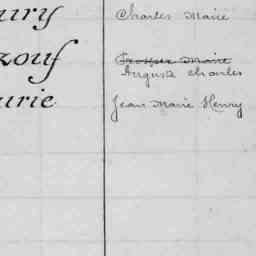 ury Charles Marie
zouf Prosper Marie
Auguste Charles
urie Jean Marie Henry